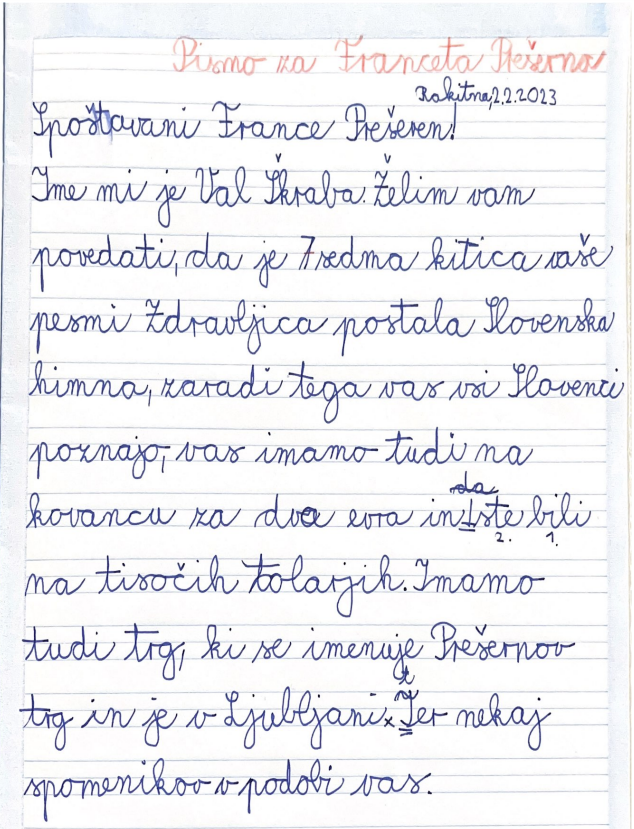 Pismo za Franceta Prešerna
Rakitna, 2.2.2023
Spoštavani France Prešeren!
Ime mi je Val Škraba. Želim vam
povedati, da je 7sedma kitica vaše
pesmi Zdravljica postala Slovenska
himna, zaradi tega vas vsi Slovenci
poznajo, vas imamo tudi na
da
kovancu za dva evra in ste bili
2. 1.
na tisočih tolarjih. Imamo
tudi trg, ki se imenuje Prešernov
t
trg in je v Ljubljani. Ter nekaj
spomenikov v podobi vas.